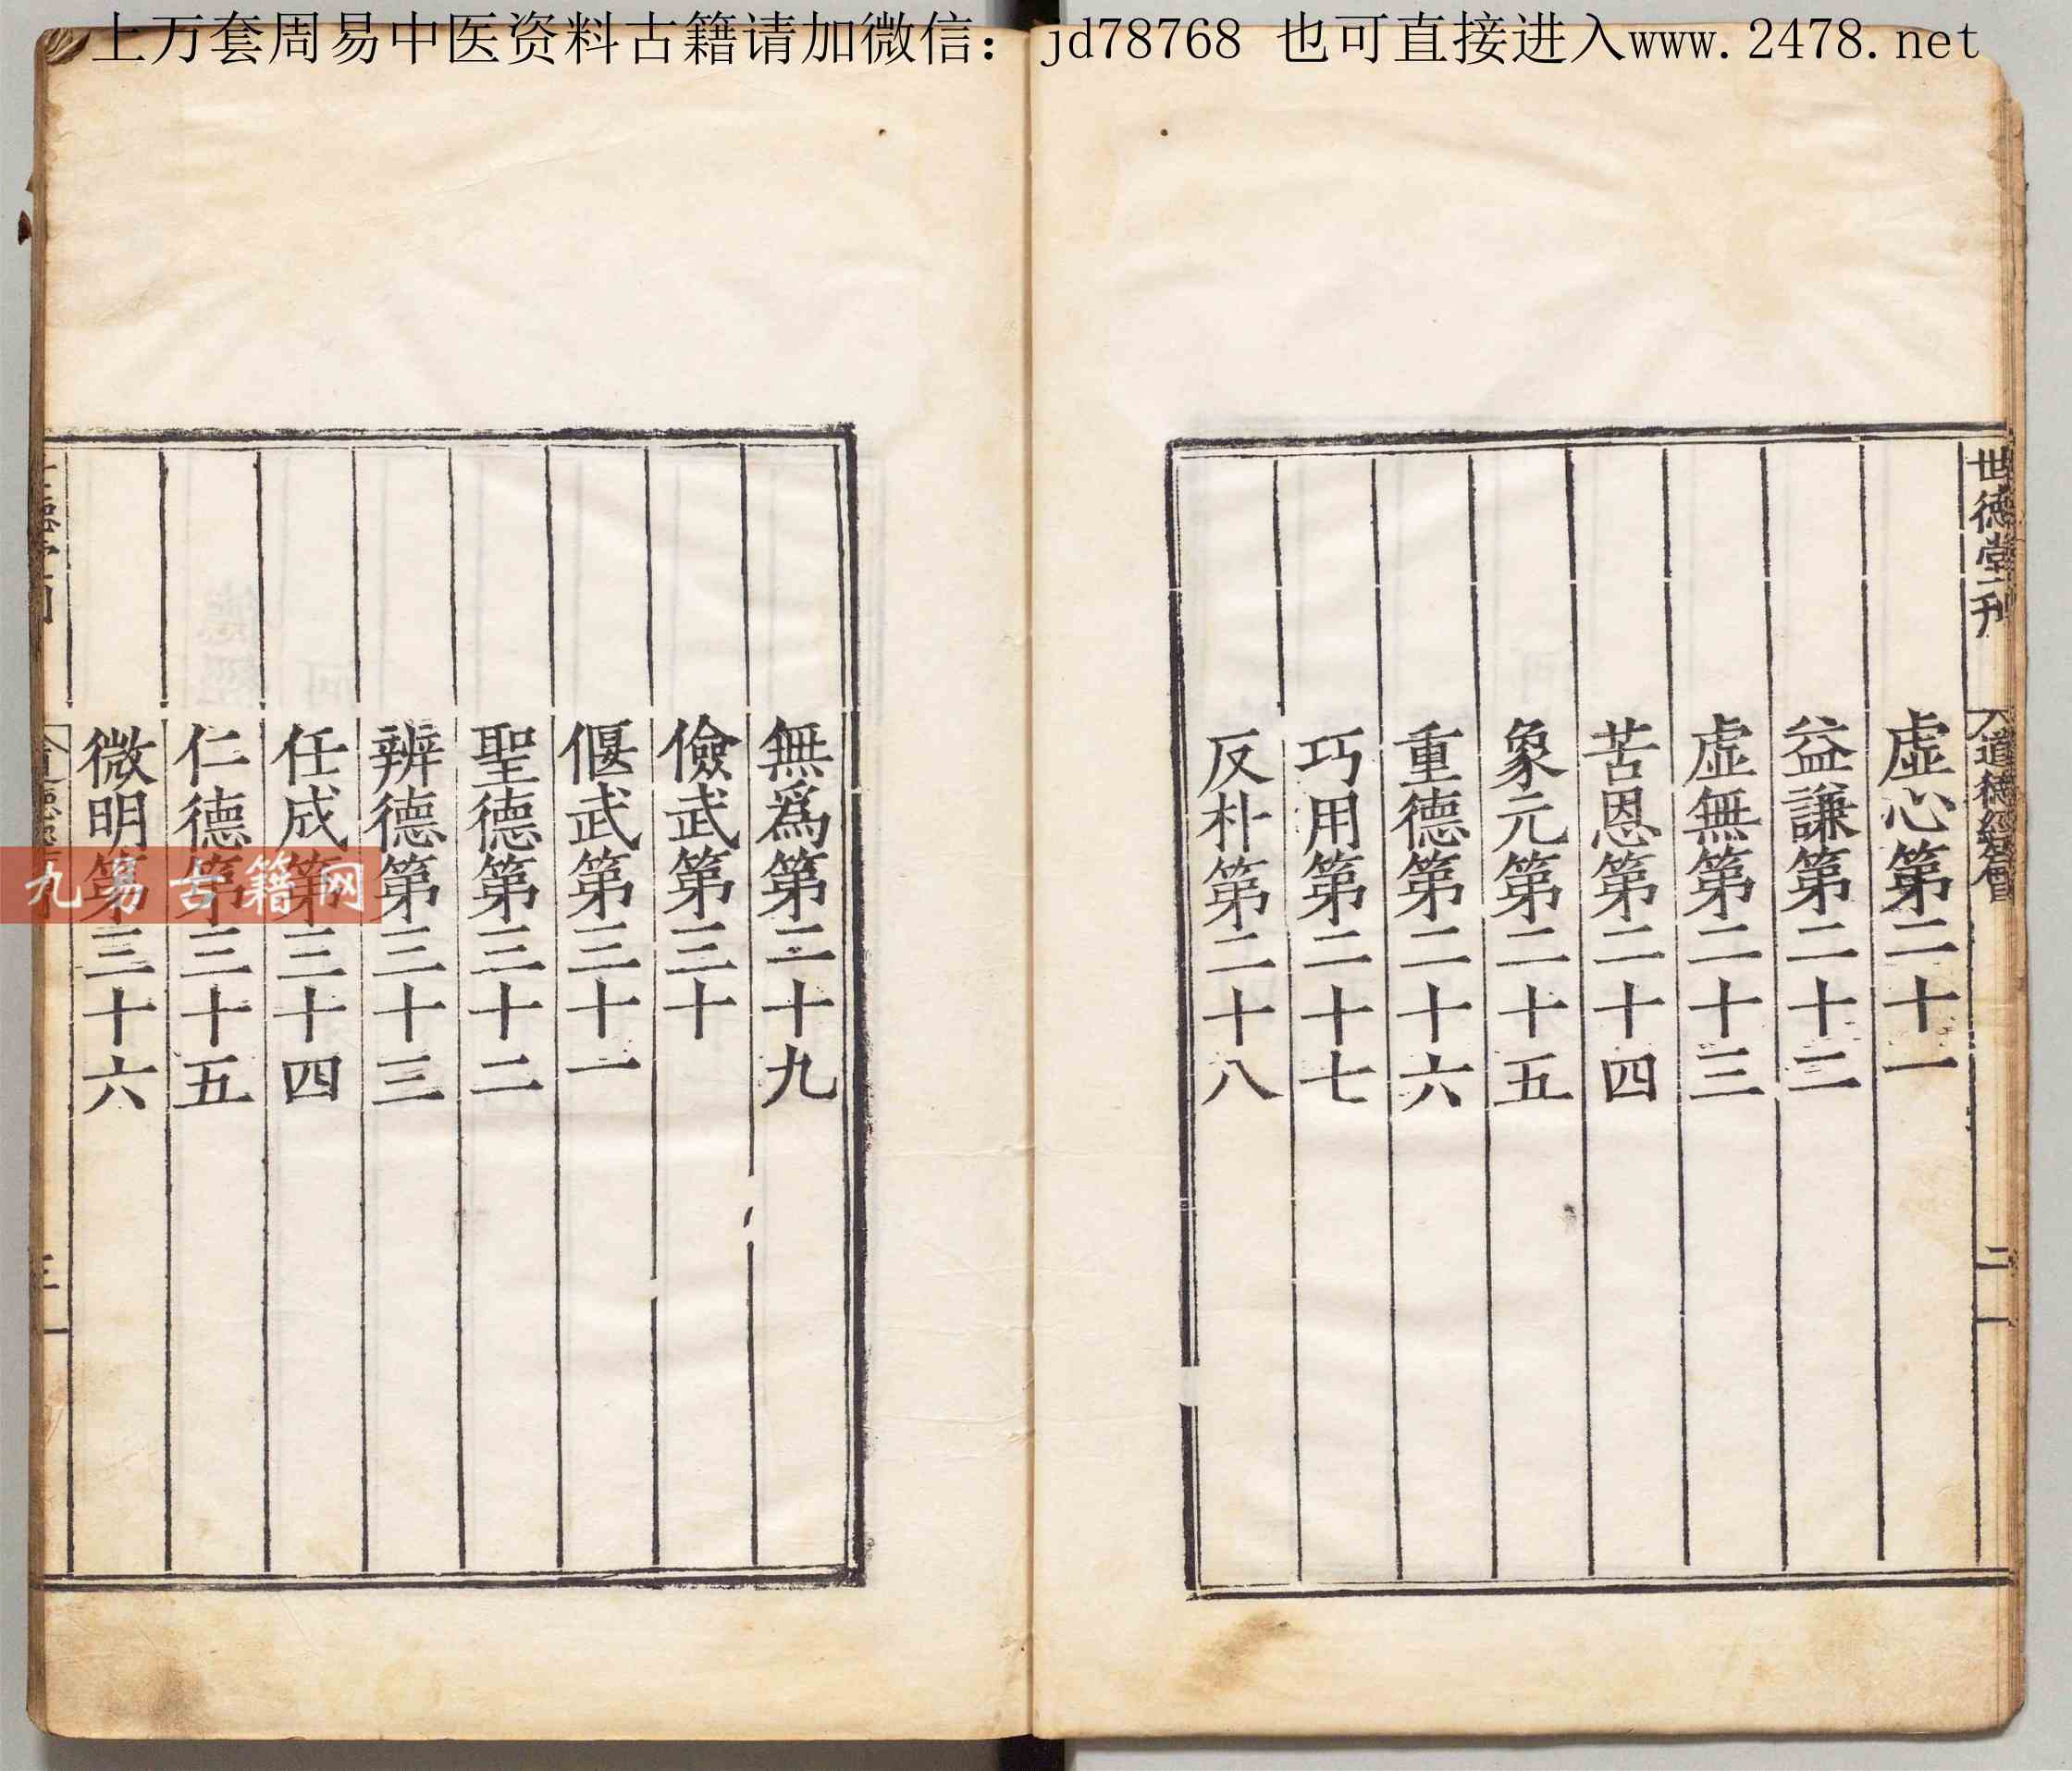 上万套周易中医资料古籍请加微信：jd78768 也可直接进入www.2478.net
世德堂刊
道德經
二
虛心第二十一
益謙第二十二
虛無第二十三
苦恩第二十四
象元第二十五
重德第二十六
巧用第二十七
反朴第二十八
無爲第二十九
儉武第三十
偃武第三十一
聖德第三十二
辨德第三十三
任成第三十四
仁德第三十五
微明第三十六
三
九易古籍网